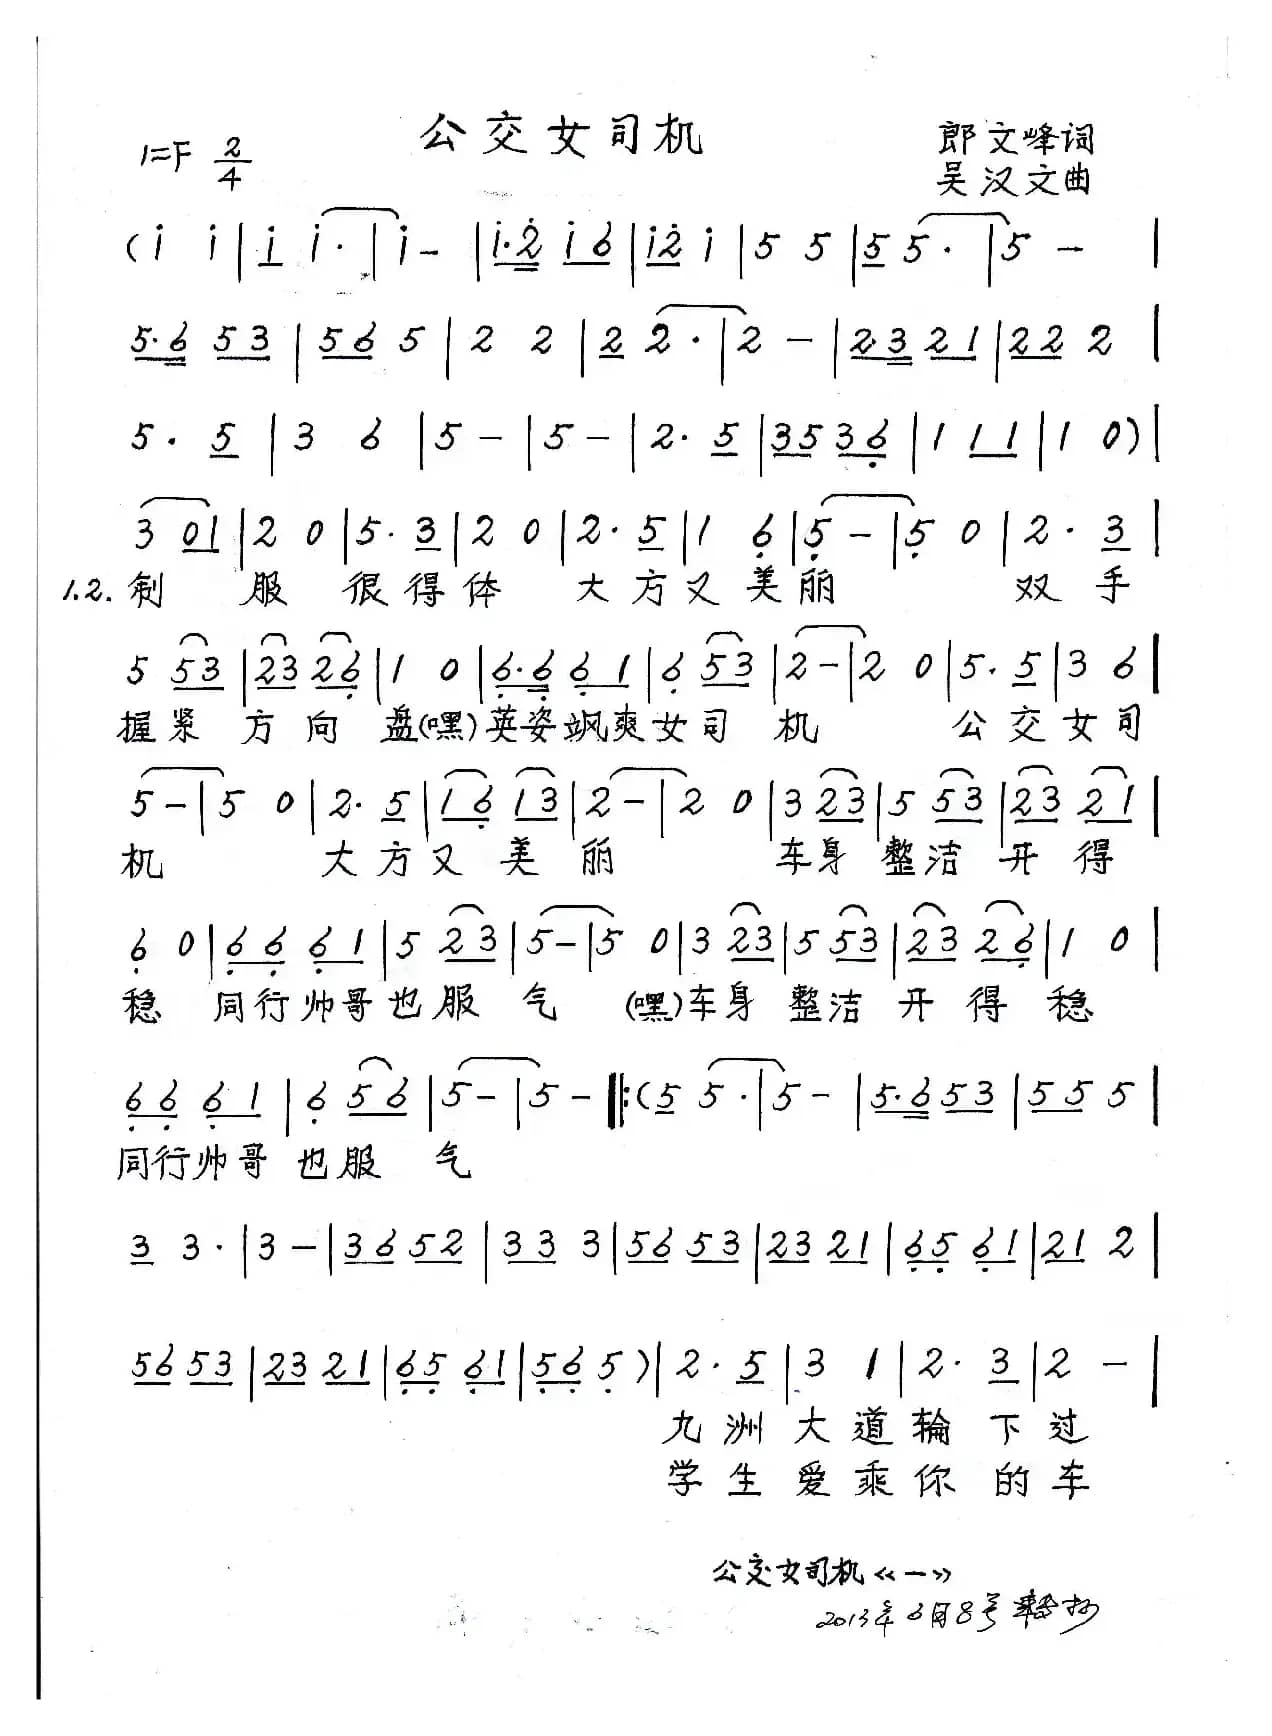 公交女司机
1=F 2/4
郎文峰词
吴汉文曲
(i i | i i· | i - | i·2 i 6 | i2 i | 5 5 | 5 5· | 5 - |
5·6 53 | 56 5 | 2 2 | 2 2· | 2 - | 2·3 21 | 22 2 |
5· 5 | 3 6 | 5 - | 5 - | 2· 5 | 35 36 | 1 11 | 1 0) |
3 01 | 2 0 | 5· 3 | 2 0 | 2· 5 | 1 6 | 5 - | 5 0 | 2· 3 |
1.2. 制 服 很得体 大方又美丽 双手
5 53 | 23 26 | 1 0 | 6·6 61 | 6 53 | 2 - | 2 0 | 5· 5 | 3 6 |
握紧方向盘(嘿)英姿飒爽女司机 公交女司
5 - | 5 0 | 2· 5 | 16 13 | 2 - | 2 0 | 3 23 | 5 53 | 23 21 |
机 大方又美丽 车身整洁开得
6 0 | 66 61 | 5 23 | 5 - | 5 0 | 3 23 | 5 53 | 23 26 | 1 0 |
稳 同行帅哥也服气 (嘿)车身整洁开得稳
66 61 | 6 56 | 5 - | 5 - ‖: (5 5· | 5 - | 5·6 53 | 55 5 |
同行帅哥也服气
3 3· | 3 - | 36 52 | 33 3 | 56 53 | 23 21 | 65 61 | 21 2 |
56 53 | 23 21 | 65 61 | 56 5) | 2· 5 | 3 1 | 2· 3 | 2 - |
九洲大道轮下过
学生爱乘你的车
公交女司机《一》
2013年6月8号